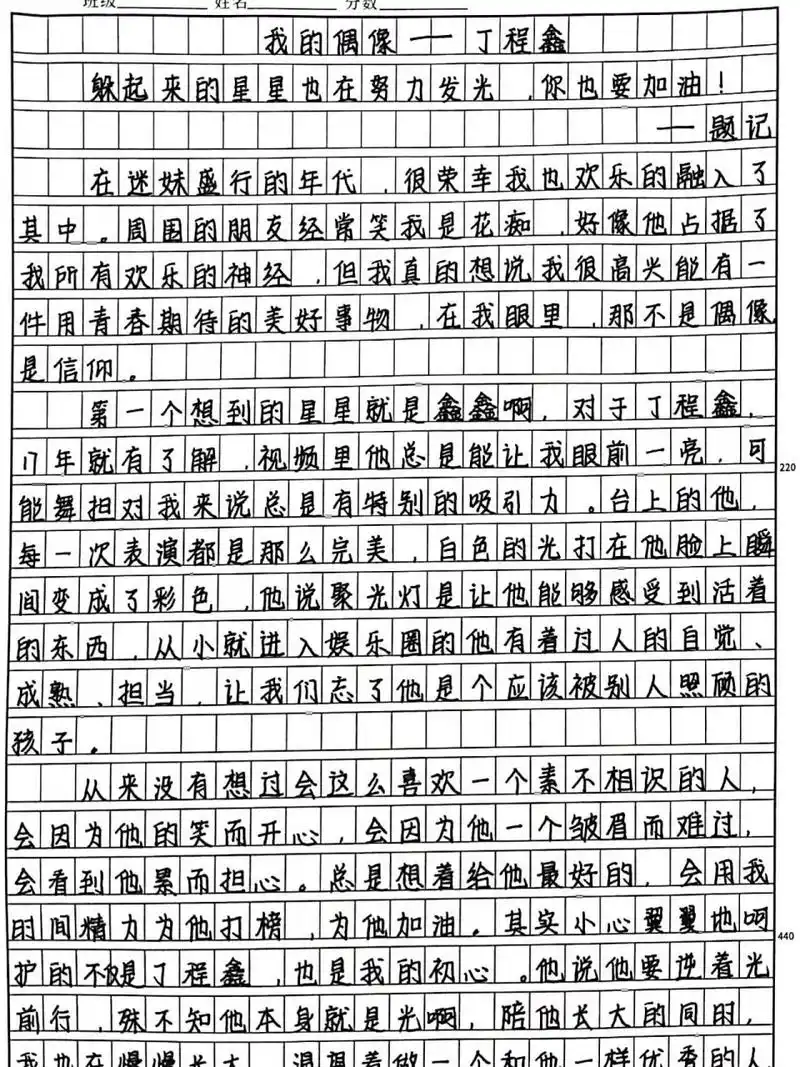 班级 姓名 分数
我的偶像——丁程鑫
躲起来的星星也在努力发光,你也要加油!
——题记
在迷妹盛行的年代,很荣幸我也欢乐的融入了
其中。周围的朋友经常笑我是花痴,好像他占据了
我所有欢乐的神经,但我真的想说我很高兴能有一
件用青春期待的美好事物,在我眼里,那不是偶像
是信仰。
第一个想到的星星就是鑫鑫啊,对于丁程鑫,
17年就有了解,视频里他总是能让我眼前一亮,可
220
能舞担对我来说总是有特别的吸引力。台上的他,
每一次表演都是那么完美,白色的光打在他脸上瞬
间变成了彩色,他说聚光灯是让他能够感受到活着
的东西,从小就进入娱乐圈的他有着过人的自觉、
成熟、担当,让我们忘了他是个应该被别人照顾的
孩子。
从来没有想过会这么喜欢一个素不相识的人,
会因为他的笑而开心,会因为他一个皱眉而难过,
会看到他累而担心。总是想着给他最好的,会用我
时间精力为他打榜,为他加油。其实小心翼翼地呵
440
护的不仅是丁程鑫,也是我的初心。他说他要逆着光
前行,殊不知他本身就是光啊,陪他长大的同时,
我也在慢慢长大,渴望着做一个和他一样优秀的人